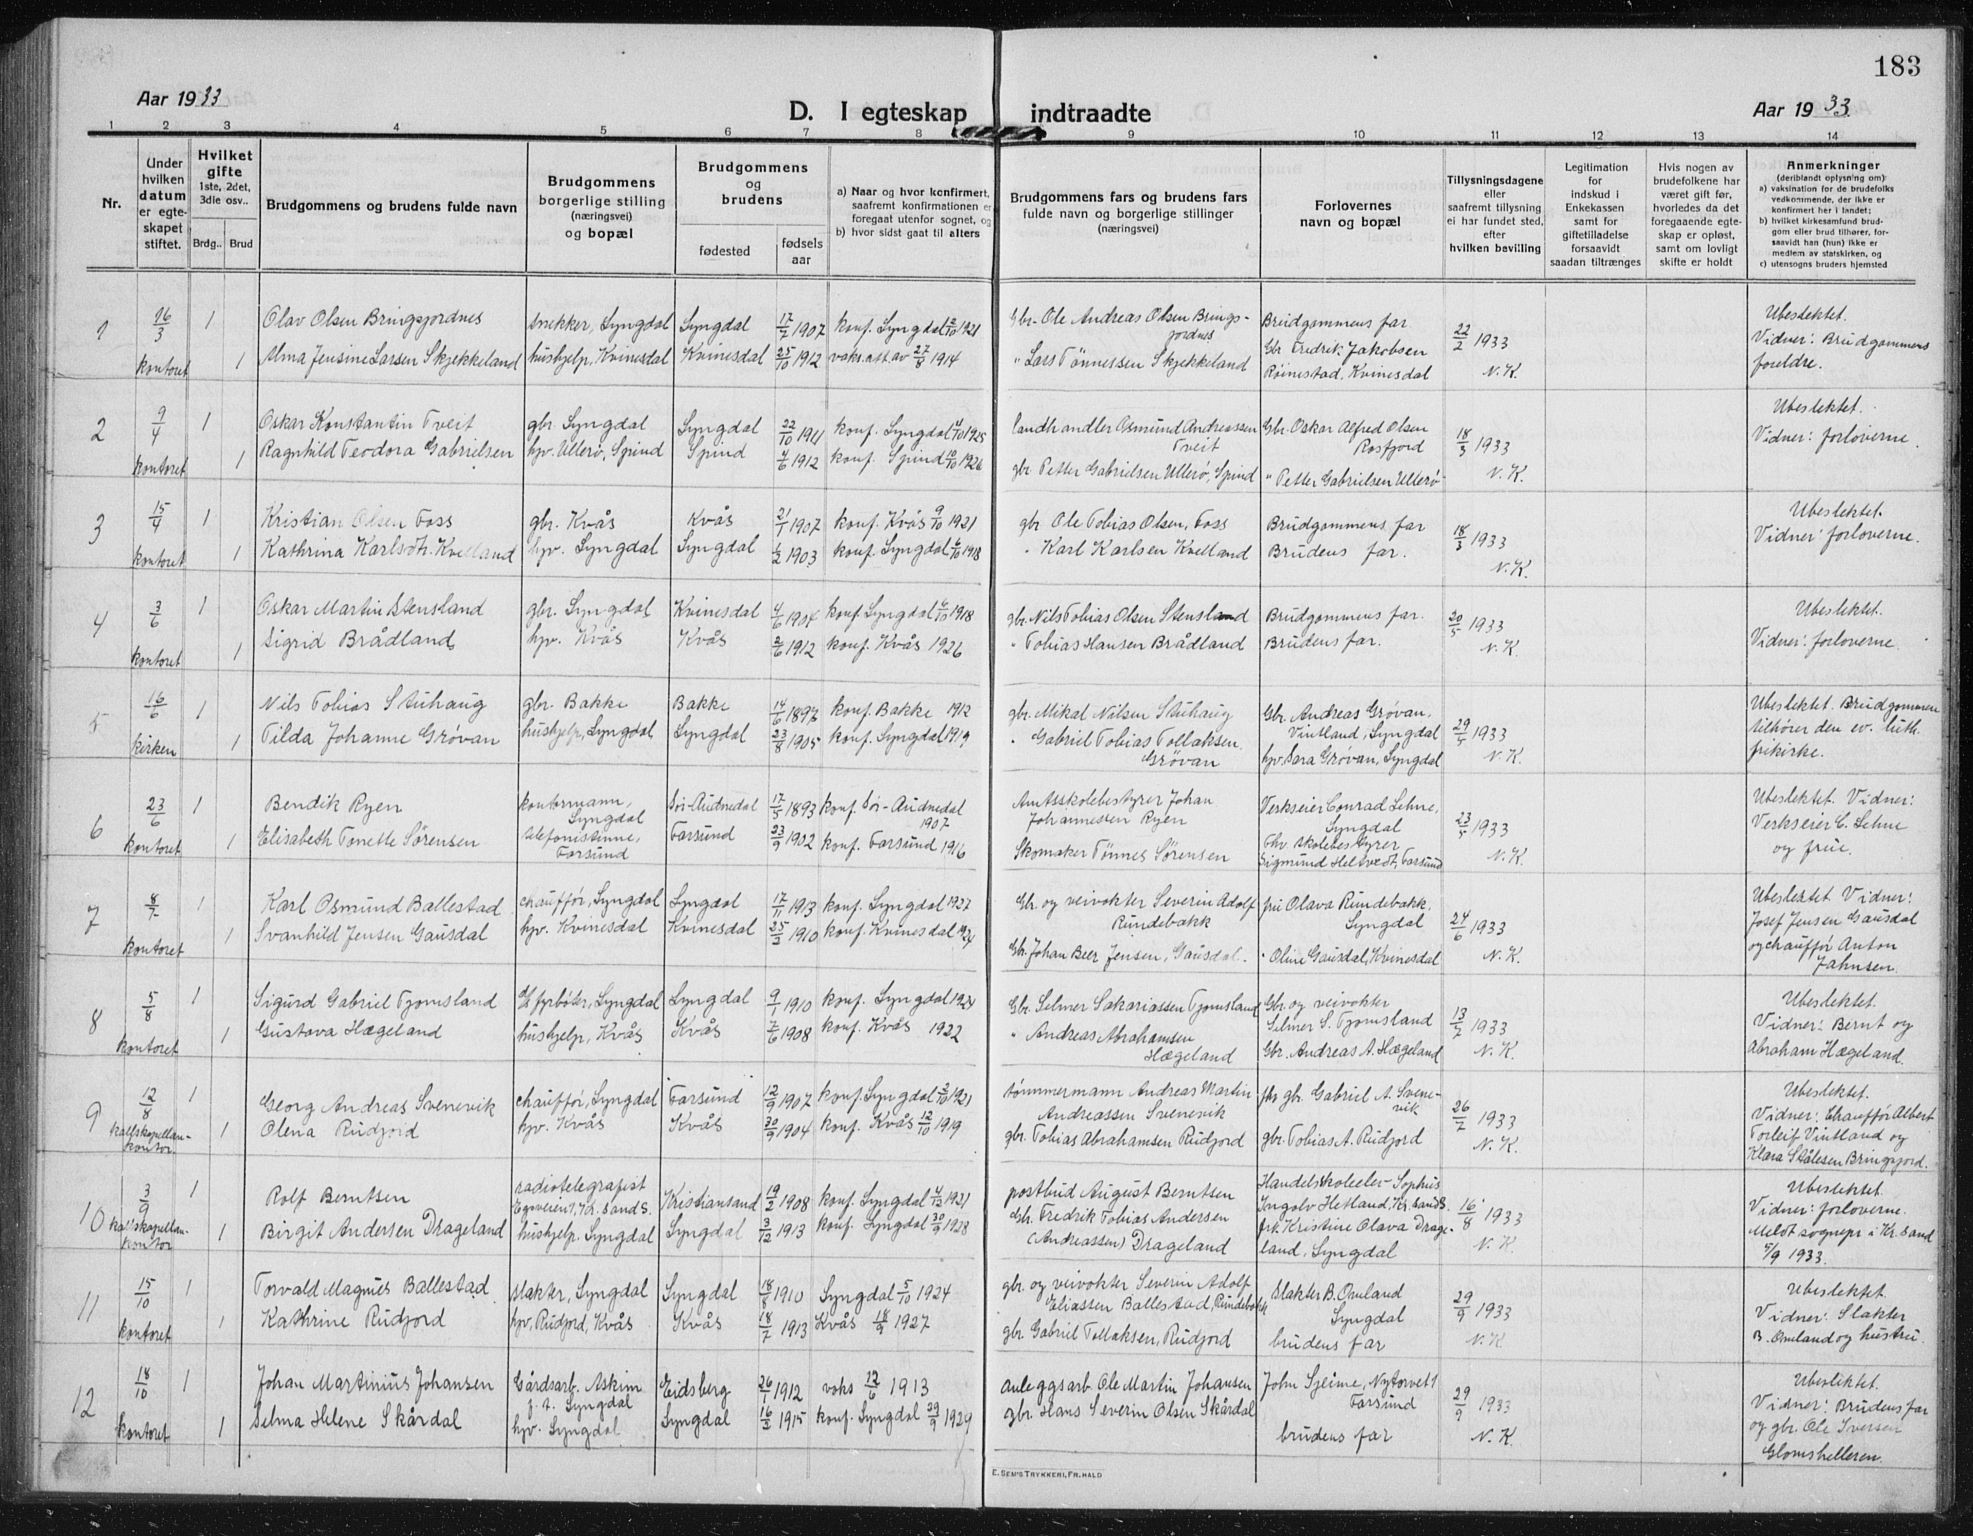 183
Aar 1933
D. I egteskap indtraadte
Aar 1933.
1 2 3 4 5 6 7 8 9 10 11 12 13 14
Nr.
Under hvilken datum er egteskapet stiftet.
Hvilket gifte 1ste, 2det, 3die osv..
Brdg.. Brud
Brudgommens og brudens fulde navn
Brudgommens borgerlige stilling (næringsvei) og bopæl
Brudgommens og brudens
fødested
fødsels aar
a) Naar og hvor konfirmert, saafremt konfirmationen er foregaat utenfor sognet, og
b) hvor sidst gaat til alters
Brudgommens fars og brudens fars fulde navn og borgerlige stillinger (næringsvei)
Forlovernes navn og bopæl
Tillysningsdagene eller saafremt tillysning ei har fundet sted, efter hvilken bevilling
Legitimation for indskud i Enkekassen samt for giftetilladelse forsaavidt saadan tiltrænges
Hvis nogen av brudefolkene har været gift før, hvorledes da det foregaaende egteskap er opløst, samt om lovligt skifte er holdt
Anmerkninger (deriblandt oplysning om)
a) vaksination for de brudefolks vedkommende, der ikke er konfirmert her i landet;
b) hvilket kirkesamfund brudgom eller brud tilhører, forsaavidt han (hun) ikke er medlem av statskirken, og
c) utensogns bruders hjemsted
1 16/3 1 Olav Olsen Bringsjordnes snekker, Lyngdal Lyngdal 17/7 1907 konf. Lyngdal 2/10 1921 Gbr. Ole Andreas Olsen Bringsjordnes Brudgommens far 22/2 1933 Ubeslektet.
kontoret 1 Alma Jensine Larsen Skjekkeland hushjelp, Kvinesdal Kvinesdal 25/10 1912 vaks.att av 27/8 1914 " Lars Tønnessen Skjekkeland Gbr Fredrik Jakobsen Røinestad, Kvinesdal N.K. Vidner: Brudgommens foreldre.
2 9/4 1 Oskar Konstantin Tveit gbr. Lyngdal Lyngdal 22/10 1911 konf. Lyngdal 4/10 1925 landhandler Osmund Andreassen Tveit Gbr. Oskar Alfred Olsen Rosfjord 18/3 1933 Ubeslektet.
kontoret 1 Ragnhild Teodora Gabrielsen hjv. Ullerø, Spind Spind 4/6 1912 konf. Spind 10/10 1926 gbr. Petter Gabrielsen Ullerø, Spind " Petter Gabrielsen Ullerø N.K. Vidner: forloverne.
3 15/4 1 Kristian Olsen Foss gbr. Kvås Kvås 21/1 1907 konf. Kvås 9/10 1921 gbr Ole Tobias Olsen, Foss Brudgommens far 18/3 1933 Ubeslektet.
kontoret 1 Kathrina Karlsdtr. Kvelland hjv. Lyngdal Lyngdal 6/2 1903 konf. Lyngdal 6/10 1918 " Karl Karlsen Kvelland Brudens far. N.K. Vidner: forloverne.
4 3/6 1 Oskar Martin Stensland gbr. Lyngdal Kvinesdal 4/6 1904 konf. Lyngdal 6/10 1918 gbr. Nils Tobias Olsen Stensland Brudgommens far 20/5 1933 Ubeslektet.
kontoret 1 Sigrid Brådland hjv. Kvås Kvås 2/6 1912 konf. Kvås 1926 " Tobias Hansen Brådland Brudens far. N.K. Vidner: forloverne.
5 16/6 1 Nils Tobias Stuhaug gbr. Bakke Bakke 14/6 1897 konf. Bakke 1912 gbr. Mikal Nilsen Stuhaug Gbr. Andreas Grøvan, Vintland, Lyngdal 29/5 1933 Ubeslektet. Brudgommen
kirken 1 Tilda Johanne Grøvan hushjelp, Lyngdal Lyngdal 23/8 1905 konf. Lyngdal 1919 " Gabriel Tobias Tollaksen Grøvan hjv. Sara Grøvan, Lyngdal N.K. tilhører den ev. luth. frikirke.
6 23/6 1 Bendik Ryen kontormann, Lyngdal Sør-Audnedal 17/5 1893 konf Sør-Audnedal 1907 Amtsskolebestyrer Johan Johannesen Ryen Verkseier Conrad Lehne, Lyngdal 23/5 1933 Ubeslektet. Vidner:
kontoret 1 Elisabeth Tonette Sørensen telefonistinne, Farsund Farsund 23/9 1902 konf. Farsund 1916 Skomaker Tønnes Sørensen Fhv skolebestyrer Sigmund Heltvedt, Farsund N.K. Verkseier C. Lehne og frue.
7 8/7 1 Karl Osmund Ballestad chauffør, Lyngdal Lyngdal 17/11 1913 konf. Lyngdal 1927 Gbr. og veivokter Severin Adolf Rundebakk fru Olava Rundebakk, Lyngdal 24/6 1933 Ubeslektet Vidner:
kontoret 1 Svanhild Jensen Gausdal hjv. Kvinesdal Kvinesdal 25/3 1910 konf. Kvinesdal 1924 Gbr. Johan Beer Jensen, Gausdal. " Oline Gausdal, Kvinesdal N.K. Josef Jensen Gausdal og chauffør Anton Jahnsen.
8 5/8 1 Sigurd Gabriel Tjomsland fyrbøter, Lyngdal Lyngdal 9/1 1910 konf. Lyngdal 1924 Gbr. Selmer Sakariassen Tjomsland Gbr. og veivokter Selmer S. Tjomsland 13/7 1933 Ubeslektet.
kontoret 1 Gustava Hægeland hushjelp, Kvås Kvås 7/6 1908 konf. Kvås 1922 " Andreas Abrahamsen Hægeland Gbr. Andreas A. Hægeland N.K. Vidner: Bernt og Abraham Hægeland.
9 12/8 1 Georg Andreas Svenevik chauffør, Lyngdal Farsund 12/9 1907 konf Lyngdal 2/10 1921 tømmermann Andreas Martin Andreassen Svenevik fhv gbr. Gabriel A. Svenevik 26/7 1933 Ubeslektet.
kallskapellankontor. 1 Olena Rudjord hjv. Kvås Kvås 30/9 1904 konf. Kvås 12/10 1919 gbr. Tobias Abrahamsen Rudjord gbr. Tobias A. Rudjord N.K. Vidner: Chauffør Albert Torleif Vintland og Klara Stålesen Bringsjord.
10 3/9 1 Rolf Berntsen radiotelegrafist Kr. Sands. Kristiansand 19/2 1908 konf. Lyngdal 4/12 1921 postbud August Berntsen Handelskoleelev Sophus Ingolv Hetland, Kr. Sands. 16/8 1933 Ubeslektet.
kallskapellankontor 1 Birgit Andersen Drageland hushjelp. Lyngdal Lyngdal 3/12 1913 konf. Lyngdal 30/9 1928 Gbr. Fredrik Tobias Andersen (Andreassen) Drageland frk. Kristine Olava Drageland, Lyngdal N.K. Vidner: forloverne. Meldt sognepr i Kr. Sand 5/9 1933.
11 15/10 1 Torvald Magnus Ballestad slakter, Lyngdal Lyngdal 18/8 1910 Lyngdal 5/10 1924 gbr. og veivokter Severin Adolf Eliassen Ballestad, Rundebakk Slakter B. Omland Lyngdal 29/9 1933 Ubeslektet.
kontoret 1 Kathrine Rudjord hjv, Rudjord, Kvås Kvås 18/7 1913 Kvås 18/9 1927 gbr. Gabriel Tollaksen, Rudjord brudens far N.K. Vidner: Slakter B. Omland og hustru.
12 18/10 1 Johan Martinius Johansen Gårdsarb. Askim f. t. Lyngdal Eidsberg 26/1 1912 vaks 12/6 1913 anleggsarb. Ole Martin Johansen John Sjeime, Nytorvet 1 Farsund 29/9 1933 Ubeslektet.
kontoret 1 Selma Helene Skårdal hjv. Lyngdal Lyngdal 16/3 1915 konf. Lyngdal 29/9 1929 gbr. Hans Severin Olsen Skårdal brudens far N.K. Vidner: Brudens far og gbr. Ole Iversen Glomshelleren.
E. SEM'S TRYKKERI, FR.HALD